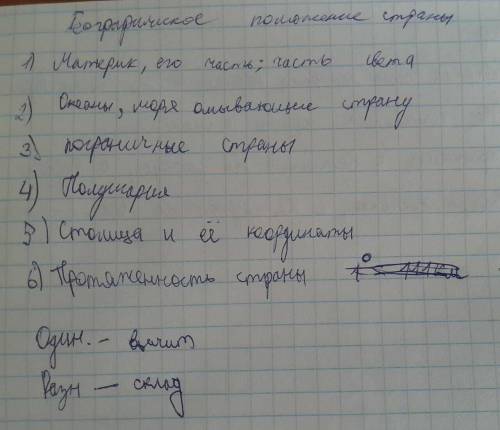 Географическое положение страны
1) Материк, его часть; часть света
2) Океаны, моря омывающие страну
3) пограничные страны
4) Полушария
5) Столица и её координаты
6) Протяженность страны 1° = 111 км
Один. - вычит
Разн - склад